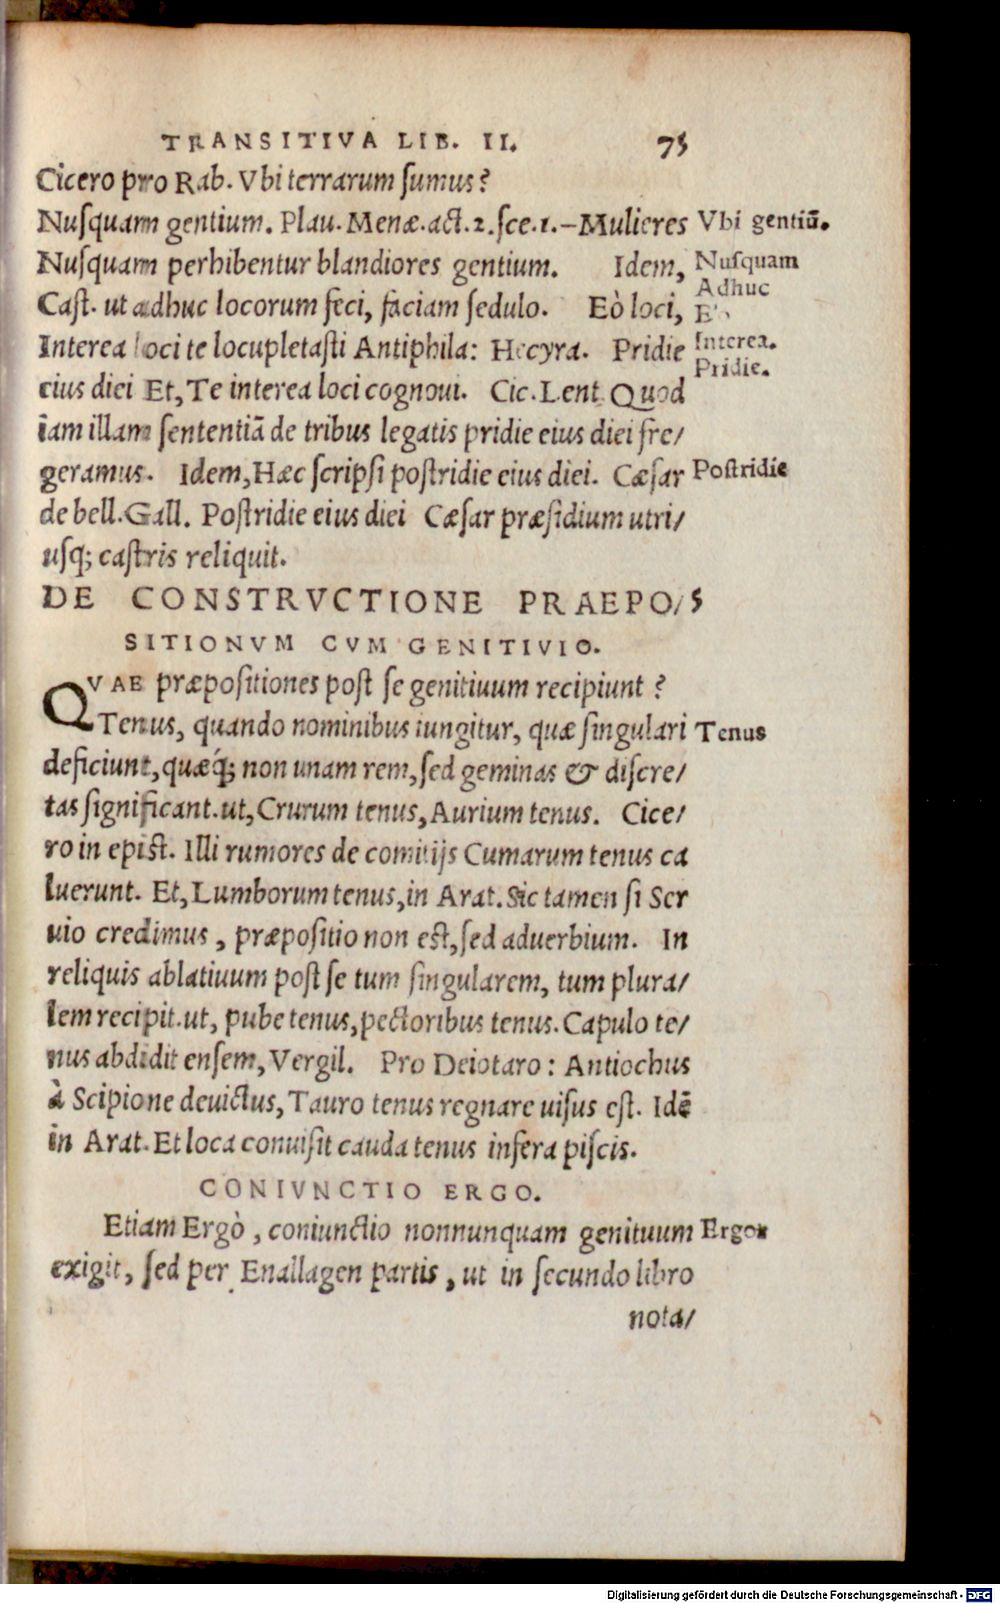 TRANSITIVA LIB. II. 75
Cicero pro Rab. Vbi terrarum ſumus?
Nuſquam gentium. Plau. Menæ. act. 2. ſce. 1. – Mulieres
Vbi gentiū.
Nuſquam perhibentur blandiores gentium. Idem,
Nuſquam
Caſt. ut adhuc locorum feci, faciam ſedulo. Eò loci,
Adhuc
Interea loci te locupletaſti Antiphila: Hecyra. Pridie
Interea.
Pridie.
eius diei Et, Te interea loci cognoui. Cic. Lent Quod
iam illam ſententiā de tribus legatis pridie eius diei fre/
geramus. Idem, Hæc ſcripſi poſtridie eius diei. Cæſar
Poſtridie
de bell. Gall. Poſtridie eius diei Cæſar præſidium utri/
uſq; caſtris reliquit.
DE CONSTRVCTIONE PRAEPO/S
SITIONVM CVM GENITIVIO.
QVAE præpoſitiones poſt ſe genitiuum recipiunt?
Tenus, quando nominibus iungitur, quæ ſingulari
Tenus
deficiunt, quæq́; non unam rem, ſed geminas & diſcre/
tas ſignificant. ut, Crurum tenus, Aurium tenus. Cice/
ro in epiſt. Illi rumores de comitijs Cumarum tenus ca
luerunt. Et, Lumborum tenus, in Arat. Sic tamen ſi Ser
uio credimus, præpoſitio non eſt, ſed aduerbium. In
reliquis ablatiuum poſt ſe tum ſingularem, tum plura/
lem recipit. ut, pube tenus, pectoribus tenus. Capulo te/
nus abdidit enſem, Vergil. Pro Deiotaro: Antiochus
à Scipione deuictus, Tauro tenus regnare uiſus eſt. Idē
in Arat. Et loca conuiſit cauda tenus infera piſcis.
CONIVNCTIO ERGO.
Etiam Ergò, coniunctio nonnunquam genituum
Ergo
exigit, ſed per Enallagen partis, ut in ſecundo libro
nota/
Digitalisierung gefördert durch die Deutsche Forschungsgemeinschaft - DFG